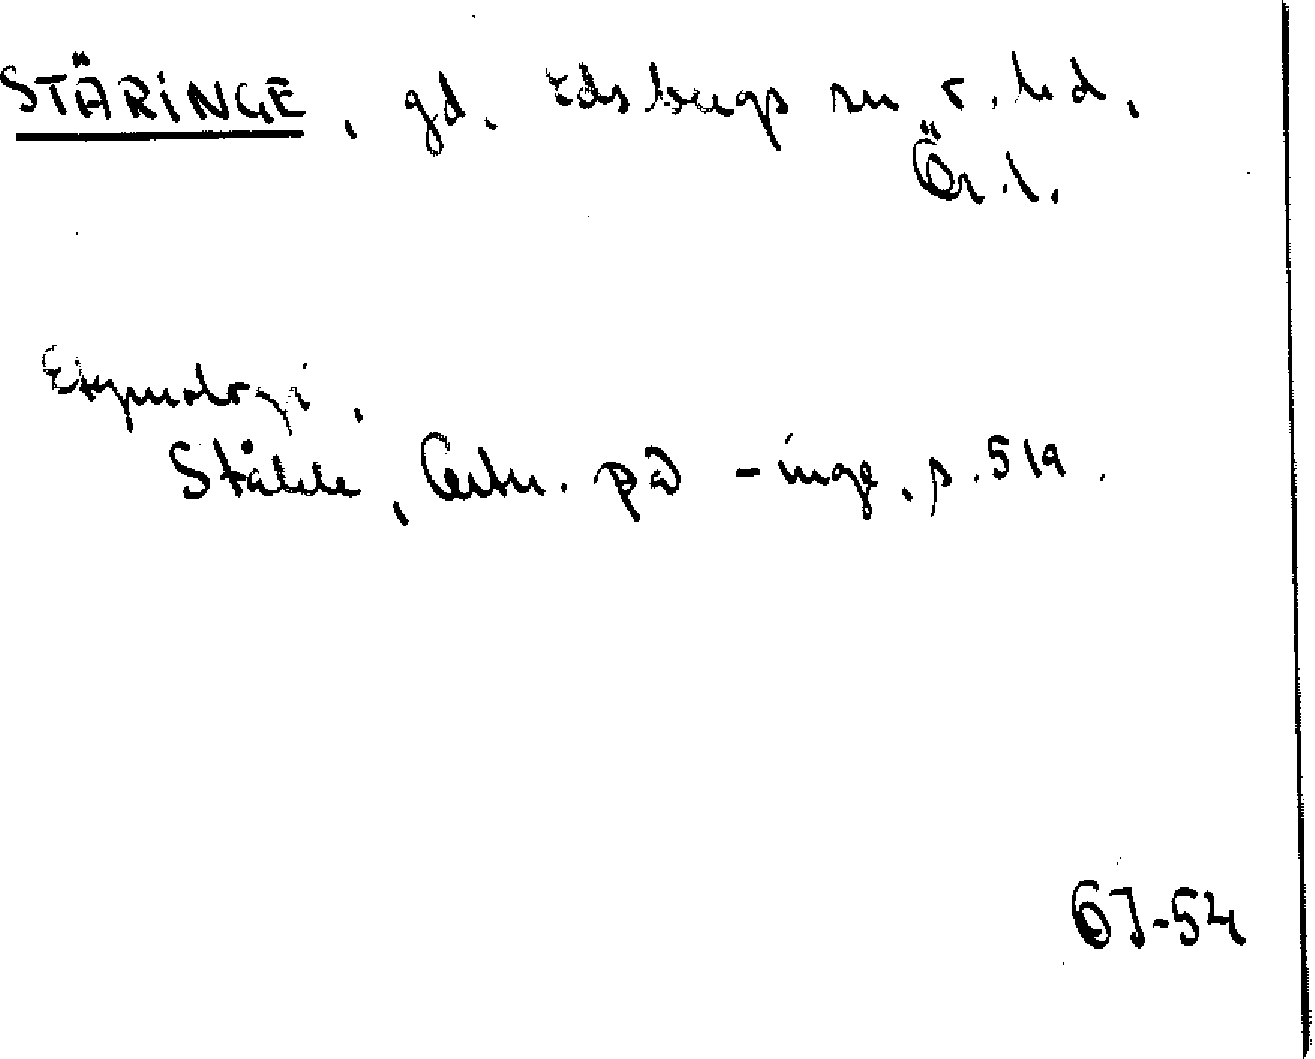 STÄRINGE, gd. Edsbergs sn o. hd,
Ör. l.
Etymologi,
Ståhle, Ortn. på -inge, s. 519.
GJ-54